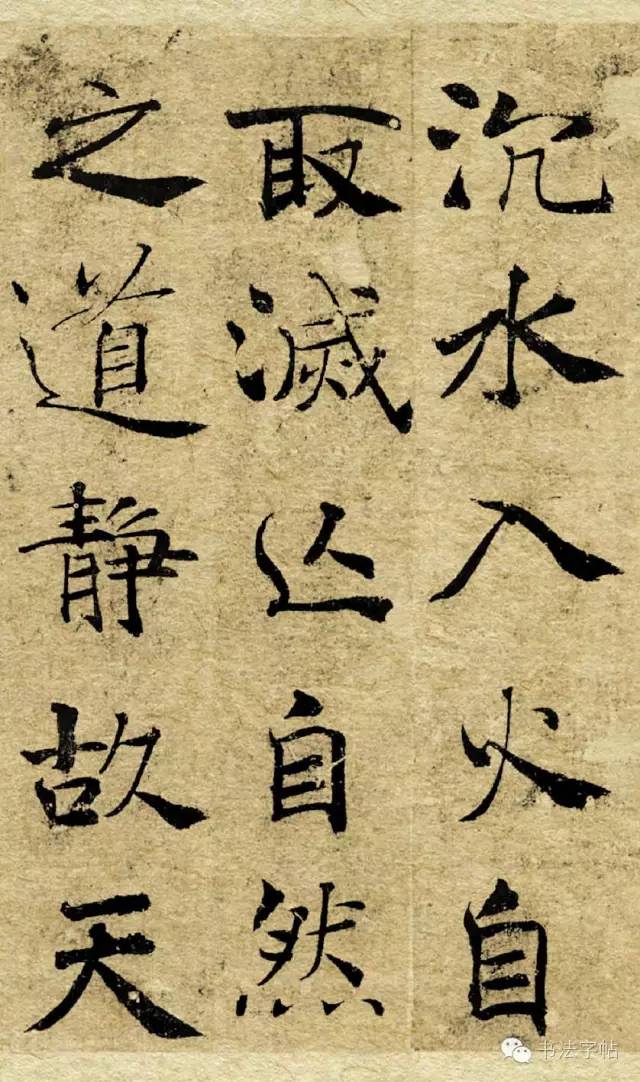 沉水入火自
取滅亾自然
之道静故天
书法字帖